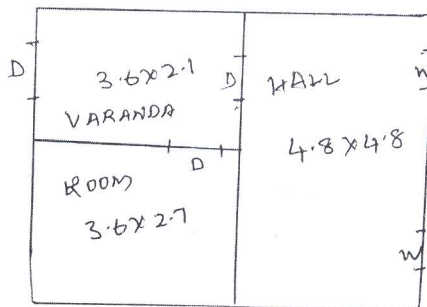 D
3.6x2.1
VARANDA
D
HALL
4.8x4.8
W
D
ROOM
3.6x2.7
W